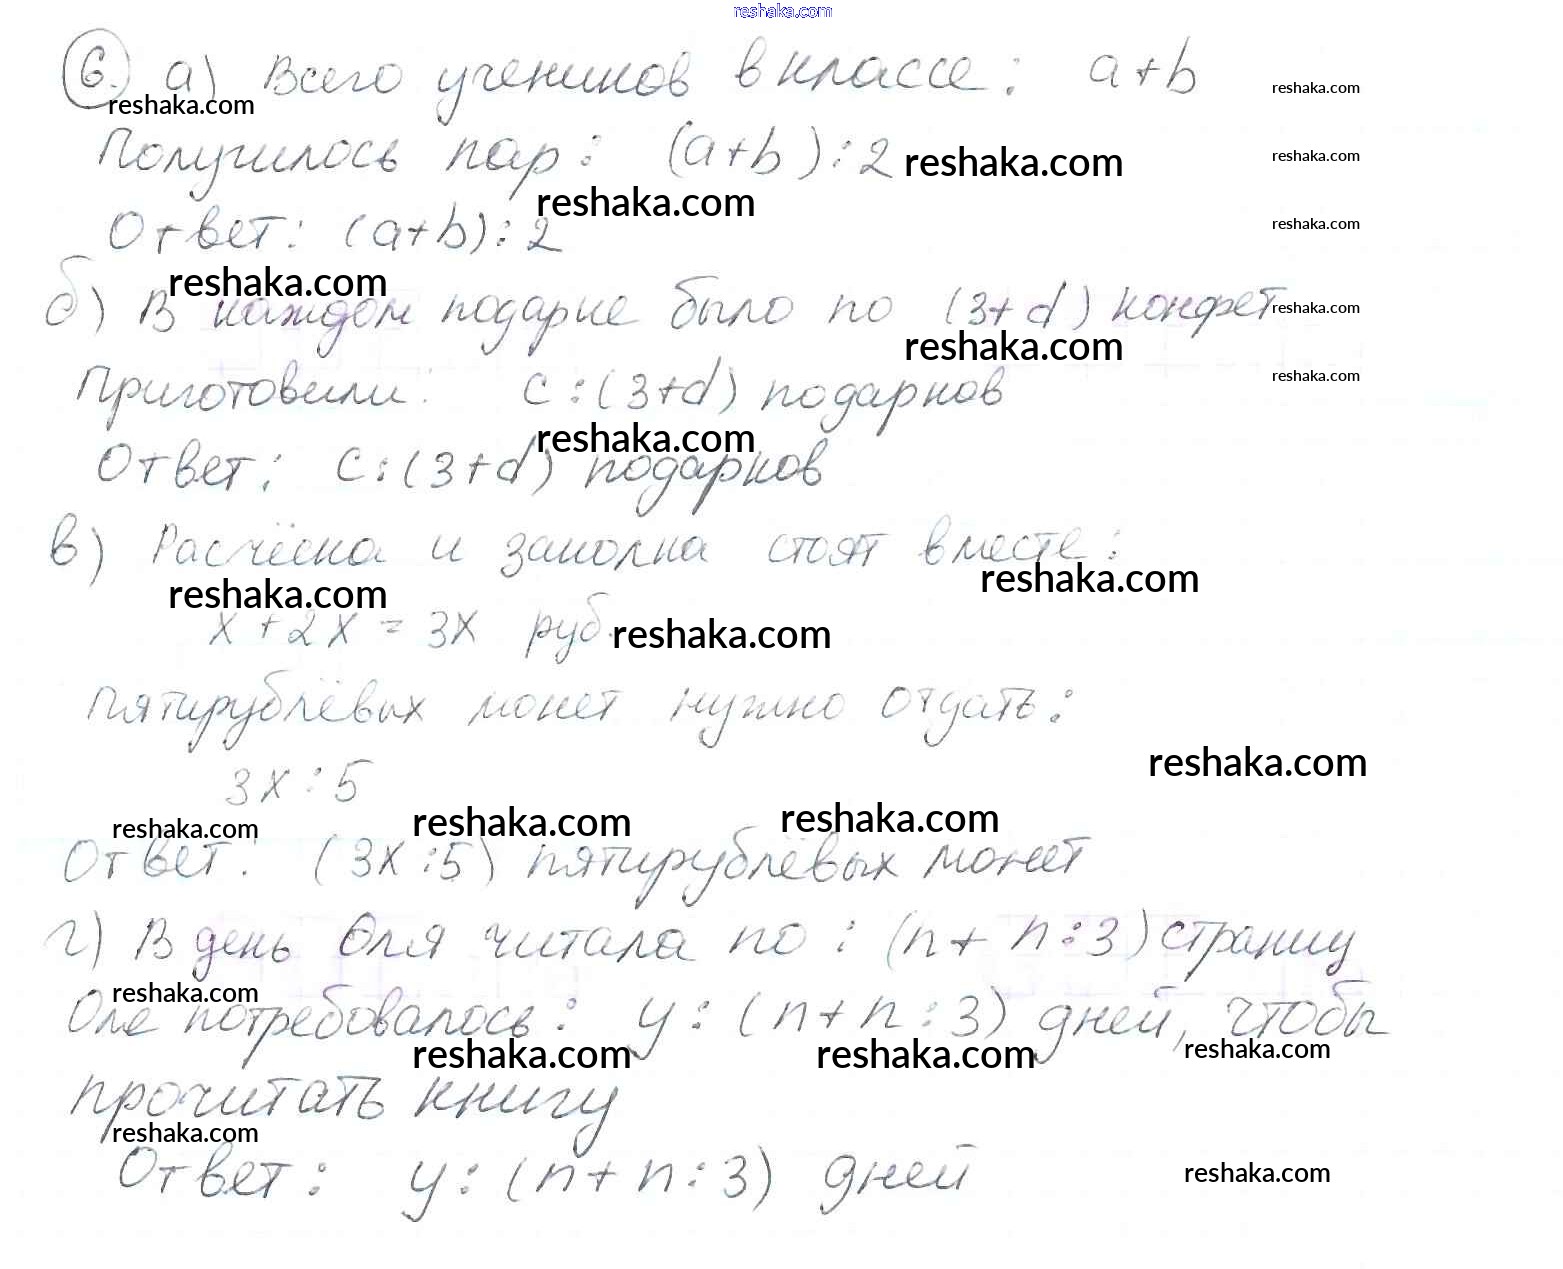 reshaka.com
6. а) Всего учеников в классе: a+b
reshaka.com
reshaka.com
Получилось пар: (a+b):2
reshaka.com
reshaka.com
reshaka.com
Ответ: (a+b):2
reshaka.com
reshaka.com
б) В каждом подарке было по (3+d) конфет
reshaka.com
reshaka.com
Приготовили: c:(3+d) подарков
reshaka.com
reshaka.com
Ответ: c:(3+d) подарков
в) Расчёска и заколка стоят вместе:
reshaka.com
reshaka.com
x+2x=3x руб.
reshaka.com
Пятирублёвых монет нужно отдать:
reshaka.com
3x:5
reshaka.com
reshaka.com
reshaka.com
Ответ: (3x:5) пятирублёвых монет
г) В день Оля читала по: (n+ n:3) страниц
reshaka.com
Оле потребовалось: y:(n+n:3) дней, чтобы
reshaka.com
reshaka.com
reshaka.com
прочитать книгу
reshaka.com
Ответ: y:(n+n:3) дней
reshaka.com